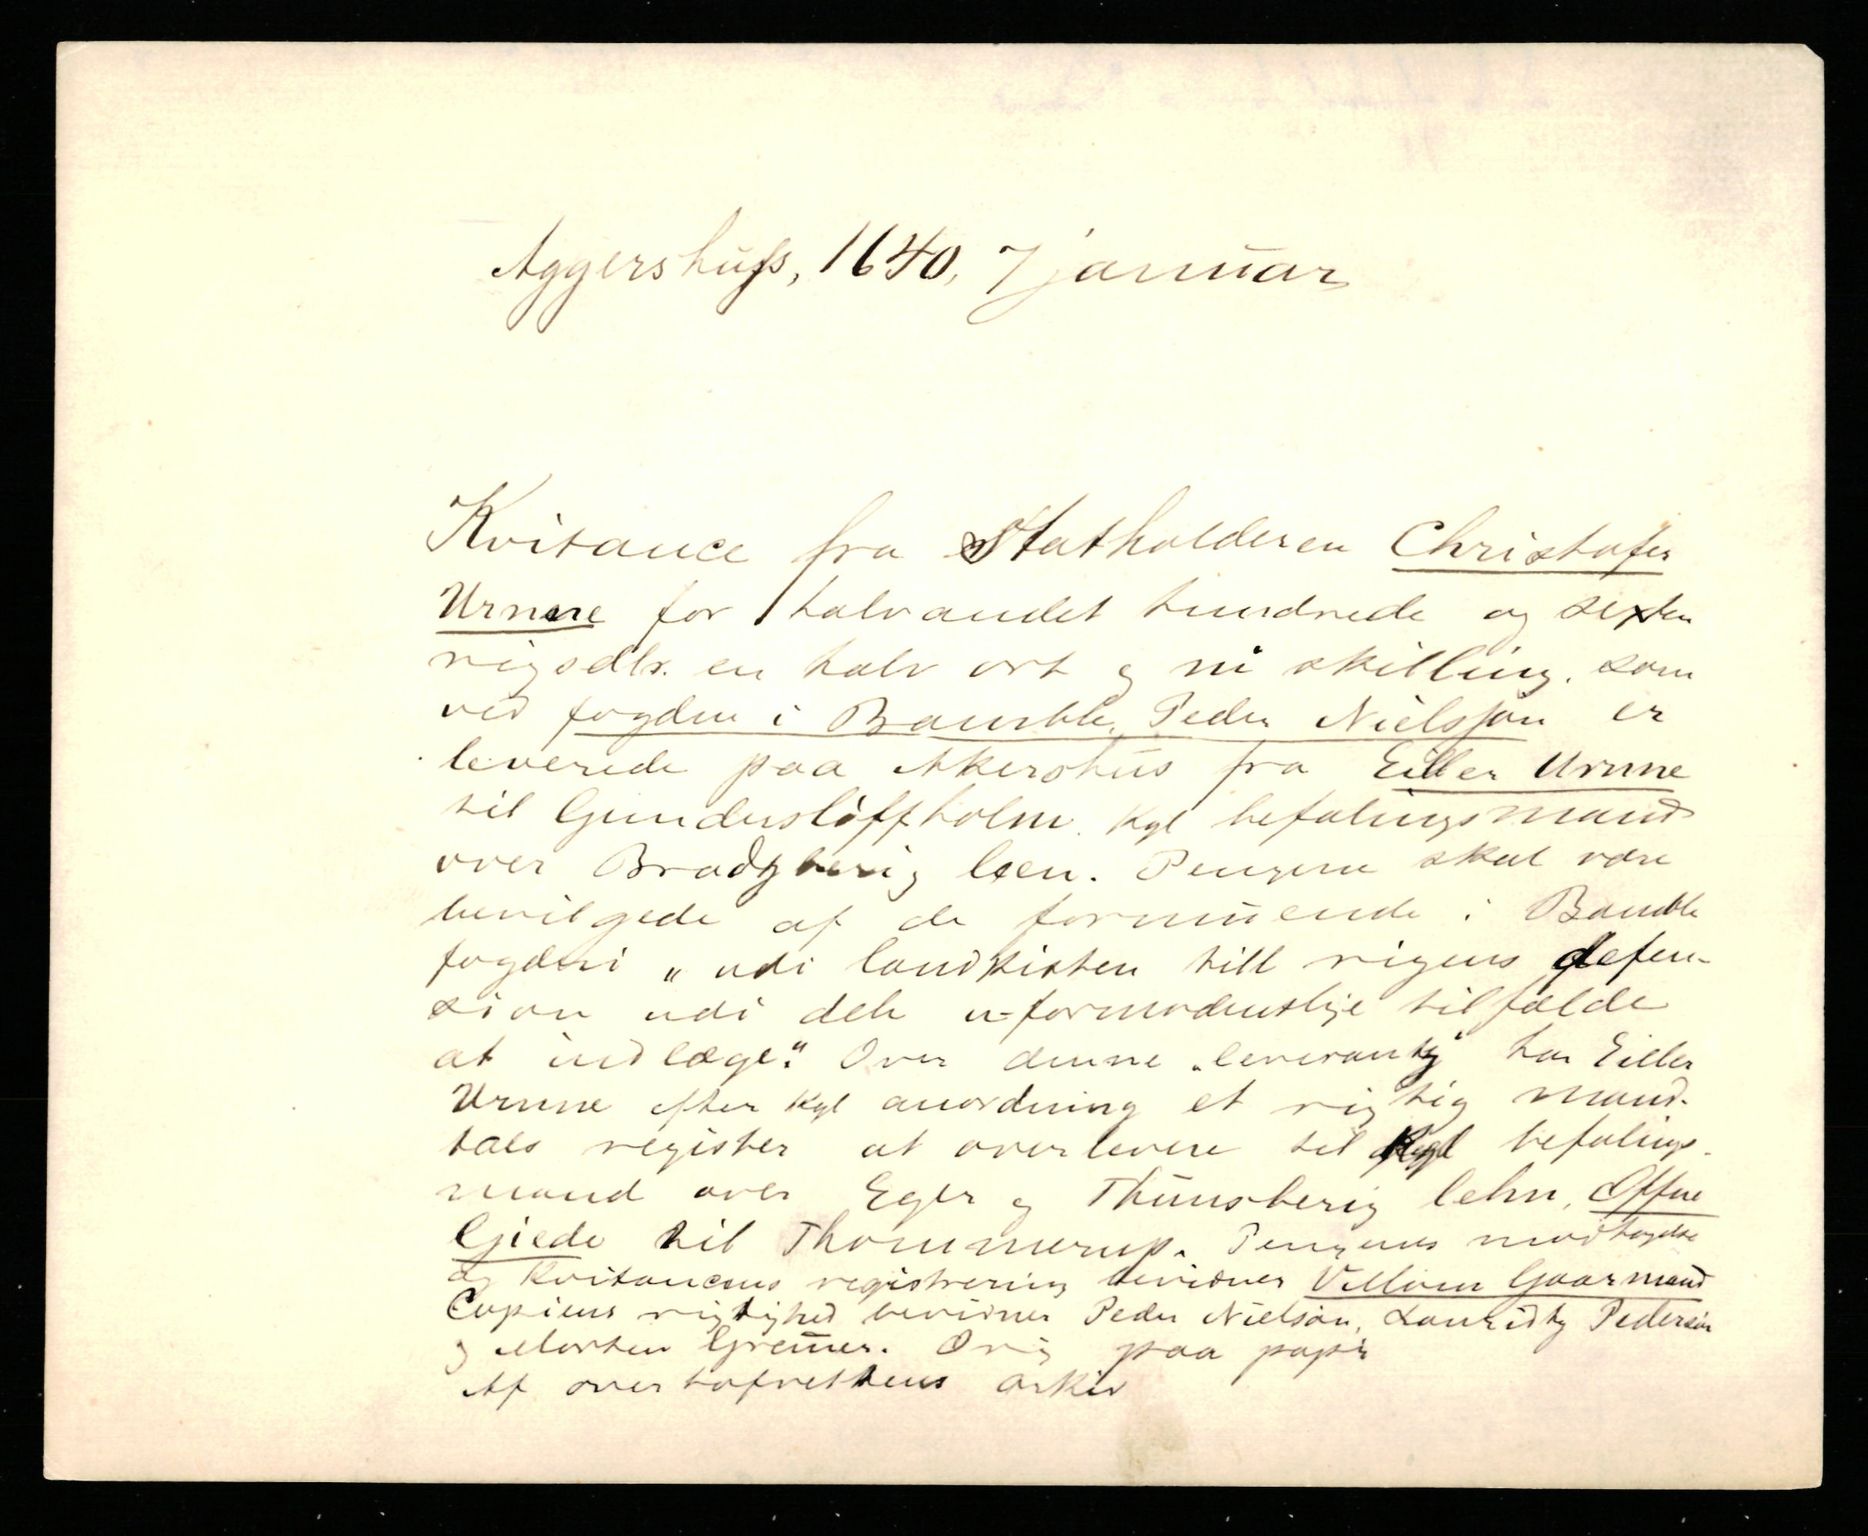 Aggershuss, 1640, 7 januar
Kvitance fra Statholderen Christofer
Urnne for halvandet hundrede og sexten
rigsdlr. en halv ort og ni skilling, som
ved fogden i Bamble, Peder Nielssøn er
leverede paa Akershus fra Eiller Urnne
til Gundersløffholm, Kgl befalingsmand
over Bradzberig læn. Pengene skal være
bevilgede af de formuende i Bamble
fogderi "udi landkisten till rigens defen-
sion udi deh u-formodentlige tilfælde
at indlæge". Over denne "leverantz" har Eiller
Urnne efter Kgl anordning et rigtig mand-
tals register at overlevere til Kgl befalings-
mand over Eger og Thunsberig lehn, Offue
Giede til Thommerup. Pengenes modtagelse
og kvitancens registrering bevidner Villom Gaarmand
Copiens rigtighed bevidner Peder Nielsøn, Lauridtz Pedersøn
og Morten Gremer. Orig paa papir
Af overhofrettens arkiv